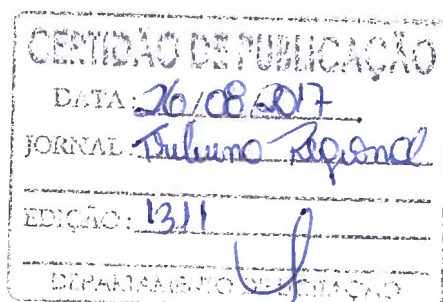 CERTIDÃO DE PUBLICAÇÃO
DATA: 26/08/2017
JORNAL: Tribuna Regional
EDIÇÃO: 1311
DEPARTAMENTO DE LICITAÇÃO